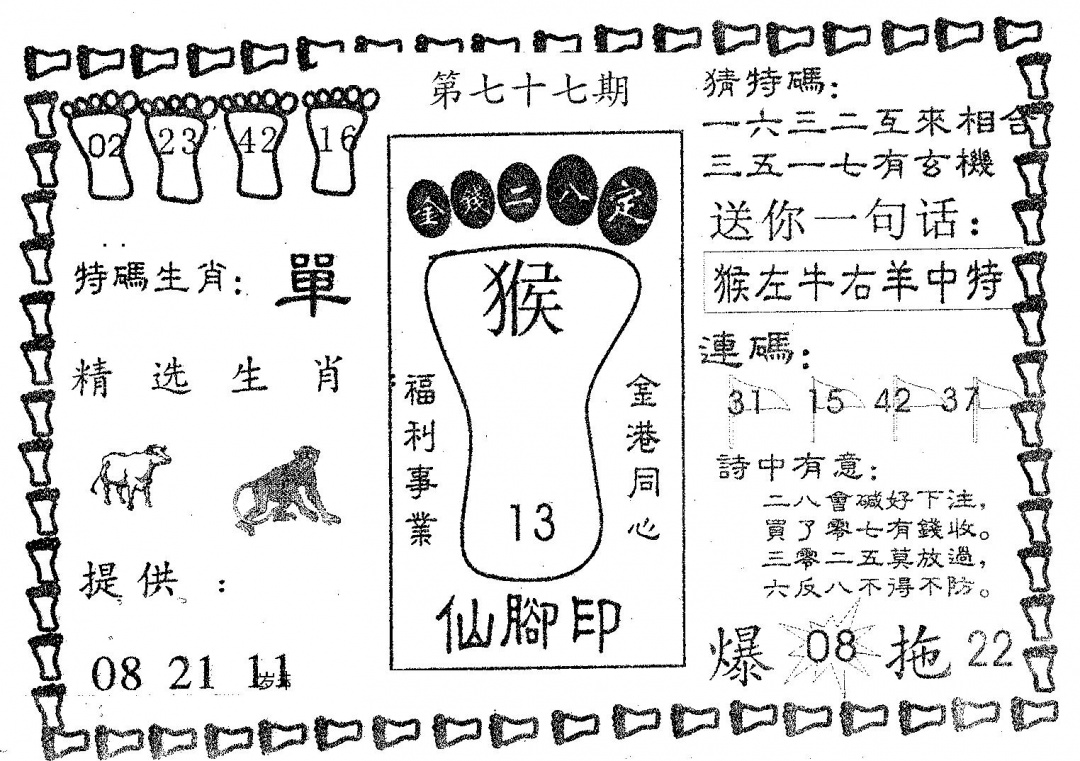 第七十七期
02 23 42 16
特碼生肖：單
精选生肖
提供：
08 21 11
金錢二八定
猴
福利事業
金港同心
13
仙腳印
猜特碼：
一六三二互來相合
三五一七有玄機
送你一句话：
猴左牛右羊中特
連碼：
31 15 42 37
詩中有意：
二八會碱好下注，
買了零七有錢收。
三零二五莫放過，
六反八不得不防。
爆 08 拖 22